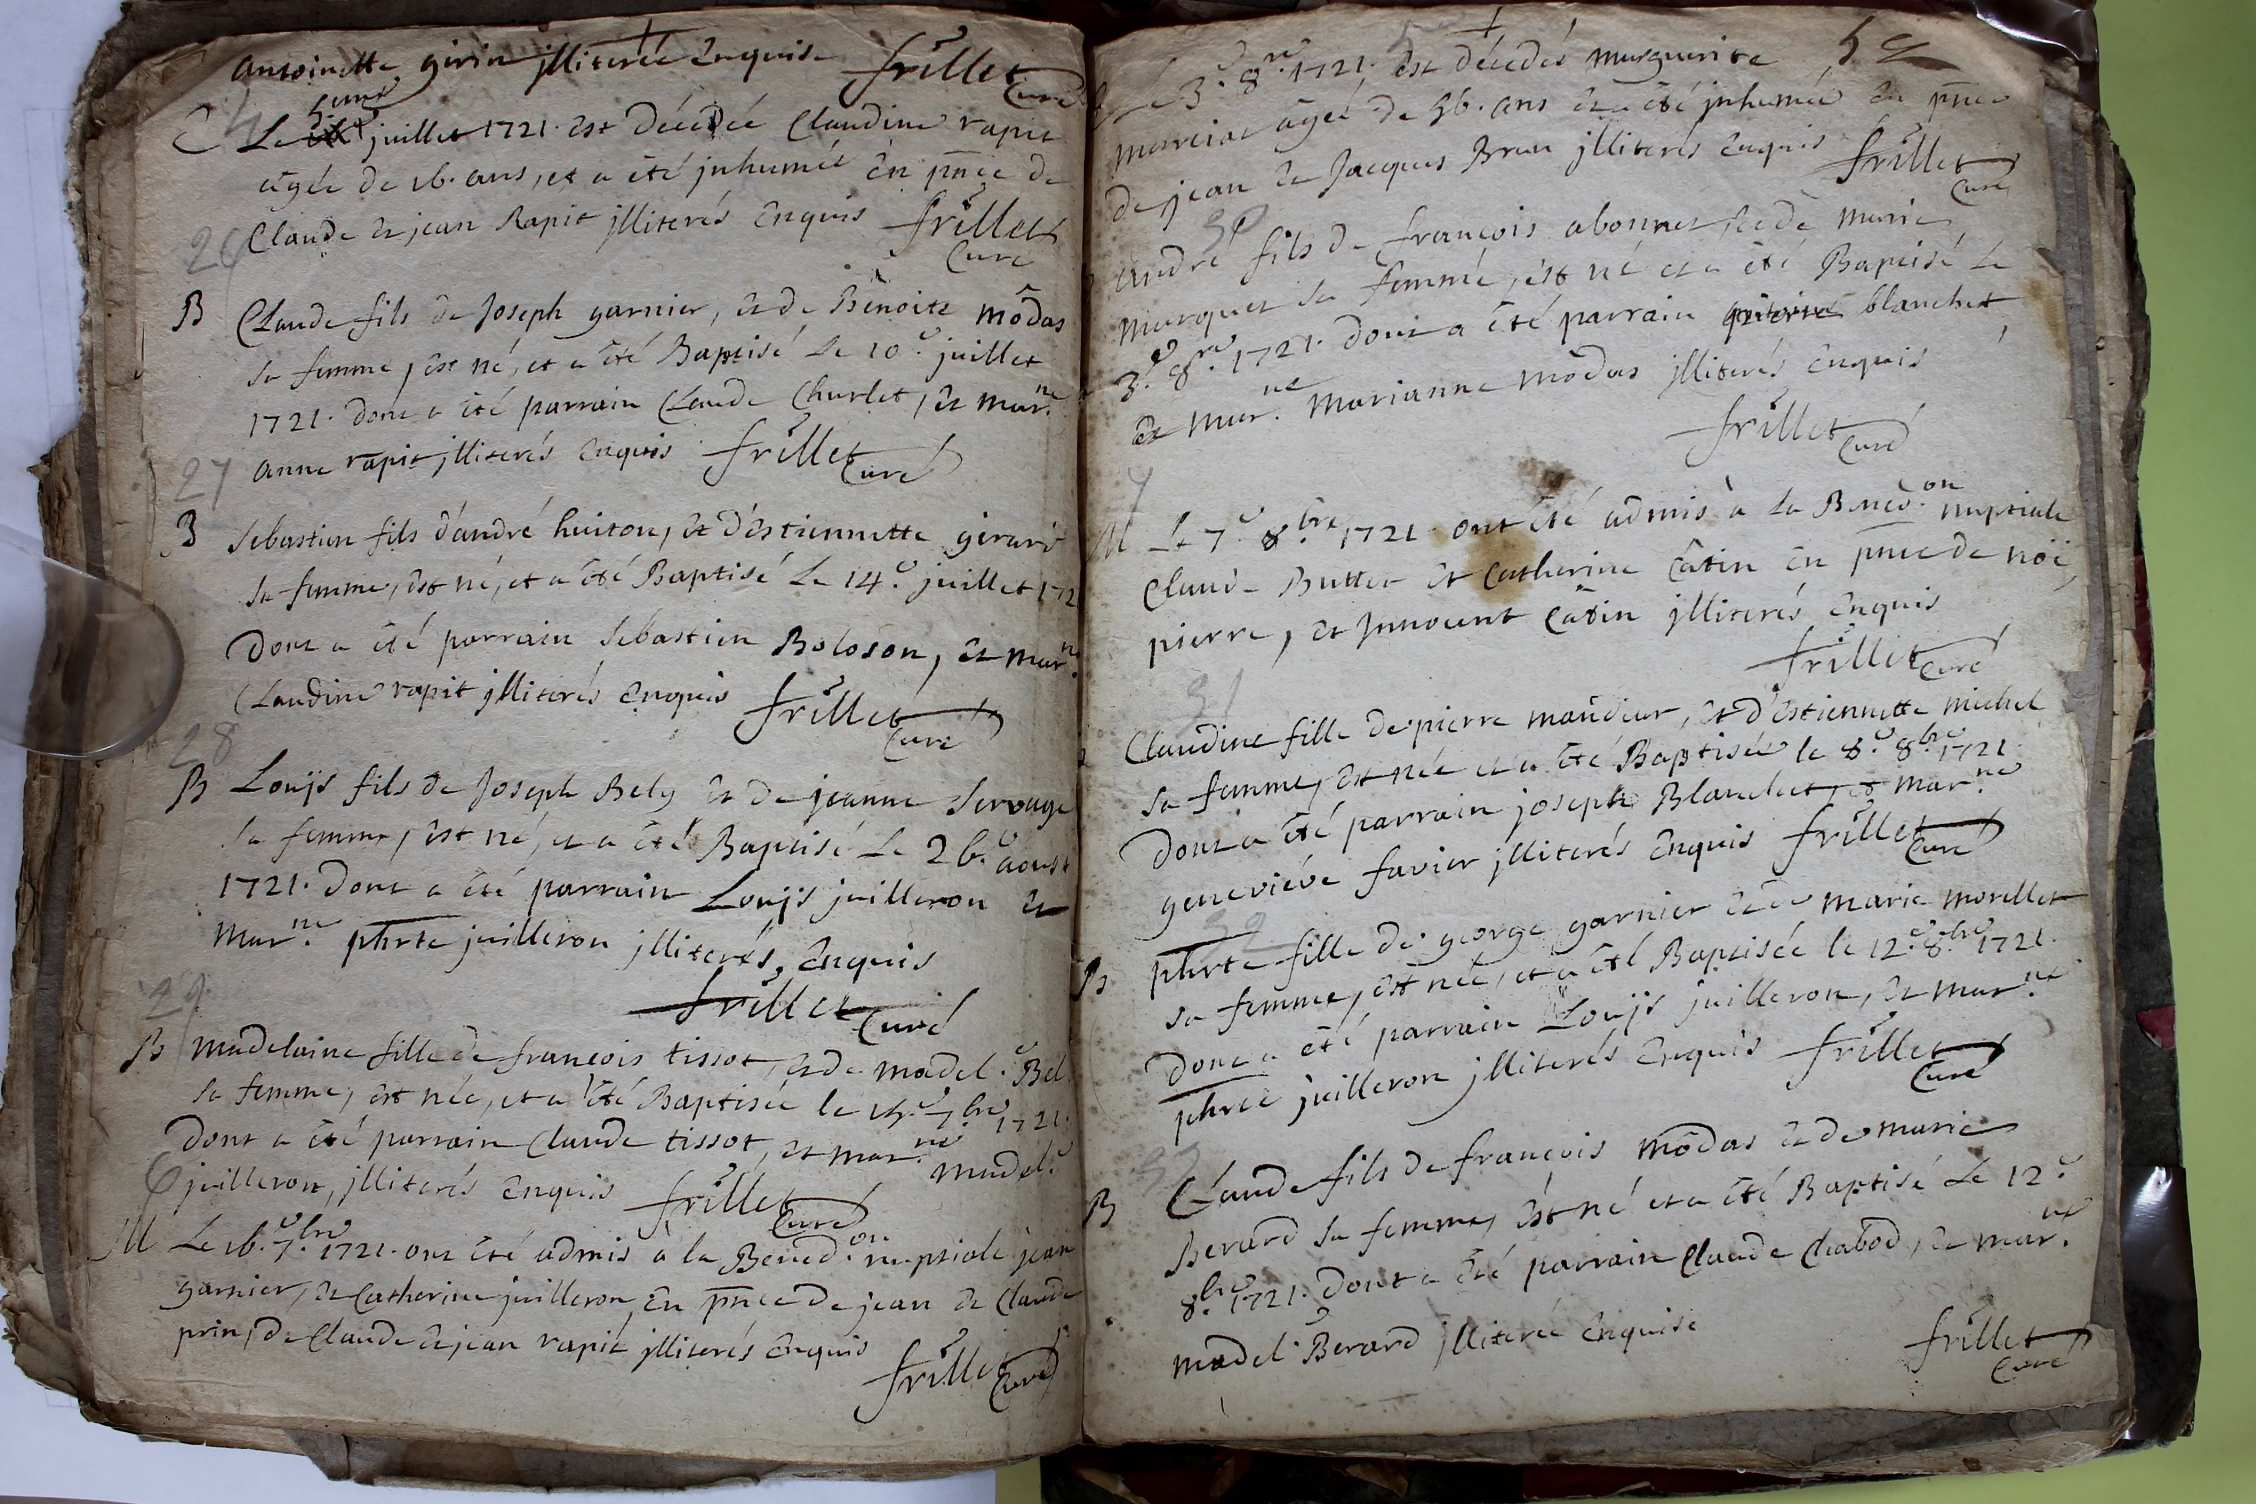 antoinette girin jlliterée Enquise frillet
Curé
Le juillet 1721. est décédée Claudine rapit
agée de 16. ans, et a été jnhumée en pnce de
Claude et jean Rapit jlliterés Enquis frillet
Curé
26
B Claude fils de Joseph garnier, et de Benoite môdas
sa femme, est né, et a été Baptisé Le 10.e juillet
1721. dont a été parrain Claude Churlet, et mar.ne
anne rapit jlliterés Enquis frillet
Curé
27
B Sebastien fils d'andré huiton, et d'Estiennette girard
sa femme, est né, et a été Baptisé Le 14.e juillet 172
Dont a été parrain Sebastien Boloson, et mar.n
Claudine rapit jlliterés Enquis frillet
Curé
28
B Louijs fils de Joseph Bely et de jeanne Servage
sa femme, est né, et a été Baptisé Le 26.e aoust
1721. Dont a été parrain Louijs juilleron et
Mar.ne phrte juilleron jlliterés, Enquis
frillet
Curé
29
B madelaine fille de francois tissot, et de madel.e Bel
sa femme, est née, et a été Baptisée le 15.e 7.bre 1721.
Dont a été parrain Claude tissot, et mar.ne madel.e
juilleron, jlliterés Enquis frillet
Curé
6
M Le 16.e 7.bre 1721. ont été admis à la Bened.on nuptiale jean
garnier, et Catherine juilleron, En pnce de jean et Claude
prin, de Claude et jean rapit jlliterés Enquis
frillet
Curé
Le 3.e 8.re 1721. est décédés marguerite
marciat agée de 56. ans et a été jnhumée En pnce
de jean et Jacques Brun jlliterés Enquis frillet
Curé
30
andré fils de françois abonnet, et de marie
marquet sa femme, est né et a été Baptisé Le
3.e 8.re 1721. dont a été parrain blanchet
et mar.ne marianne môdas jlliterés Enquis
frillet
Curé
7
M Le 7.e 8.bre 1721. ont été admis à La Bened.on nuptiale
Claude Buttet et Catherine Câtin En pnce de noë
pierre, et Jnnocent Câtin jlliterés Enquis
frillet
Curé
31
Claudine fille de pierre maudeur, et d'Estiennette michel
sa femme, est née et a été Baptisée le 8.e 8.bre 1721.
Dont a été parrain joseph Blanchet, et mar.ne
geneviéve favier jlliterés Enquis frillet
Curé
32
B phrte fille de george garnier et de marie morellet
sa femme, est née, et a été Baptisée le 12.e 8.bre 1721.
Dont a été parrain Louijs juilleron, et mar.ne
phrte juilleron jlliterés Enquis frillet
Curé
33
B Claude fils de francois môdas et de marie
Berard sa femme, est né et a été Baptisé Le 12.e
8.bre 1721. dont a été parrain Claude Chabod, et mar.ne
madel.e Berard jlliterée Enquise
frillet
Curé